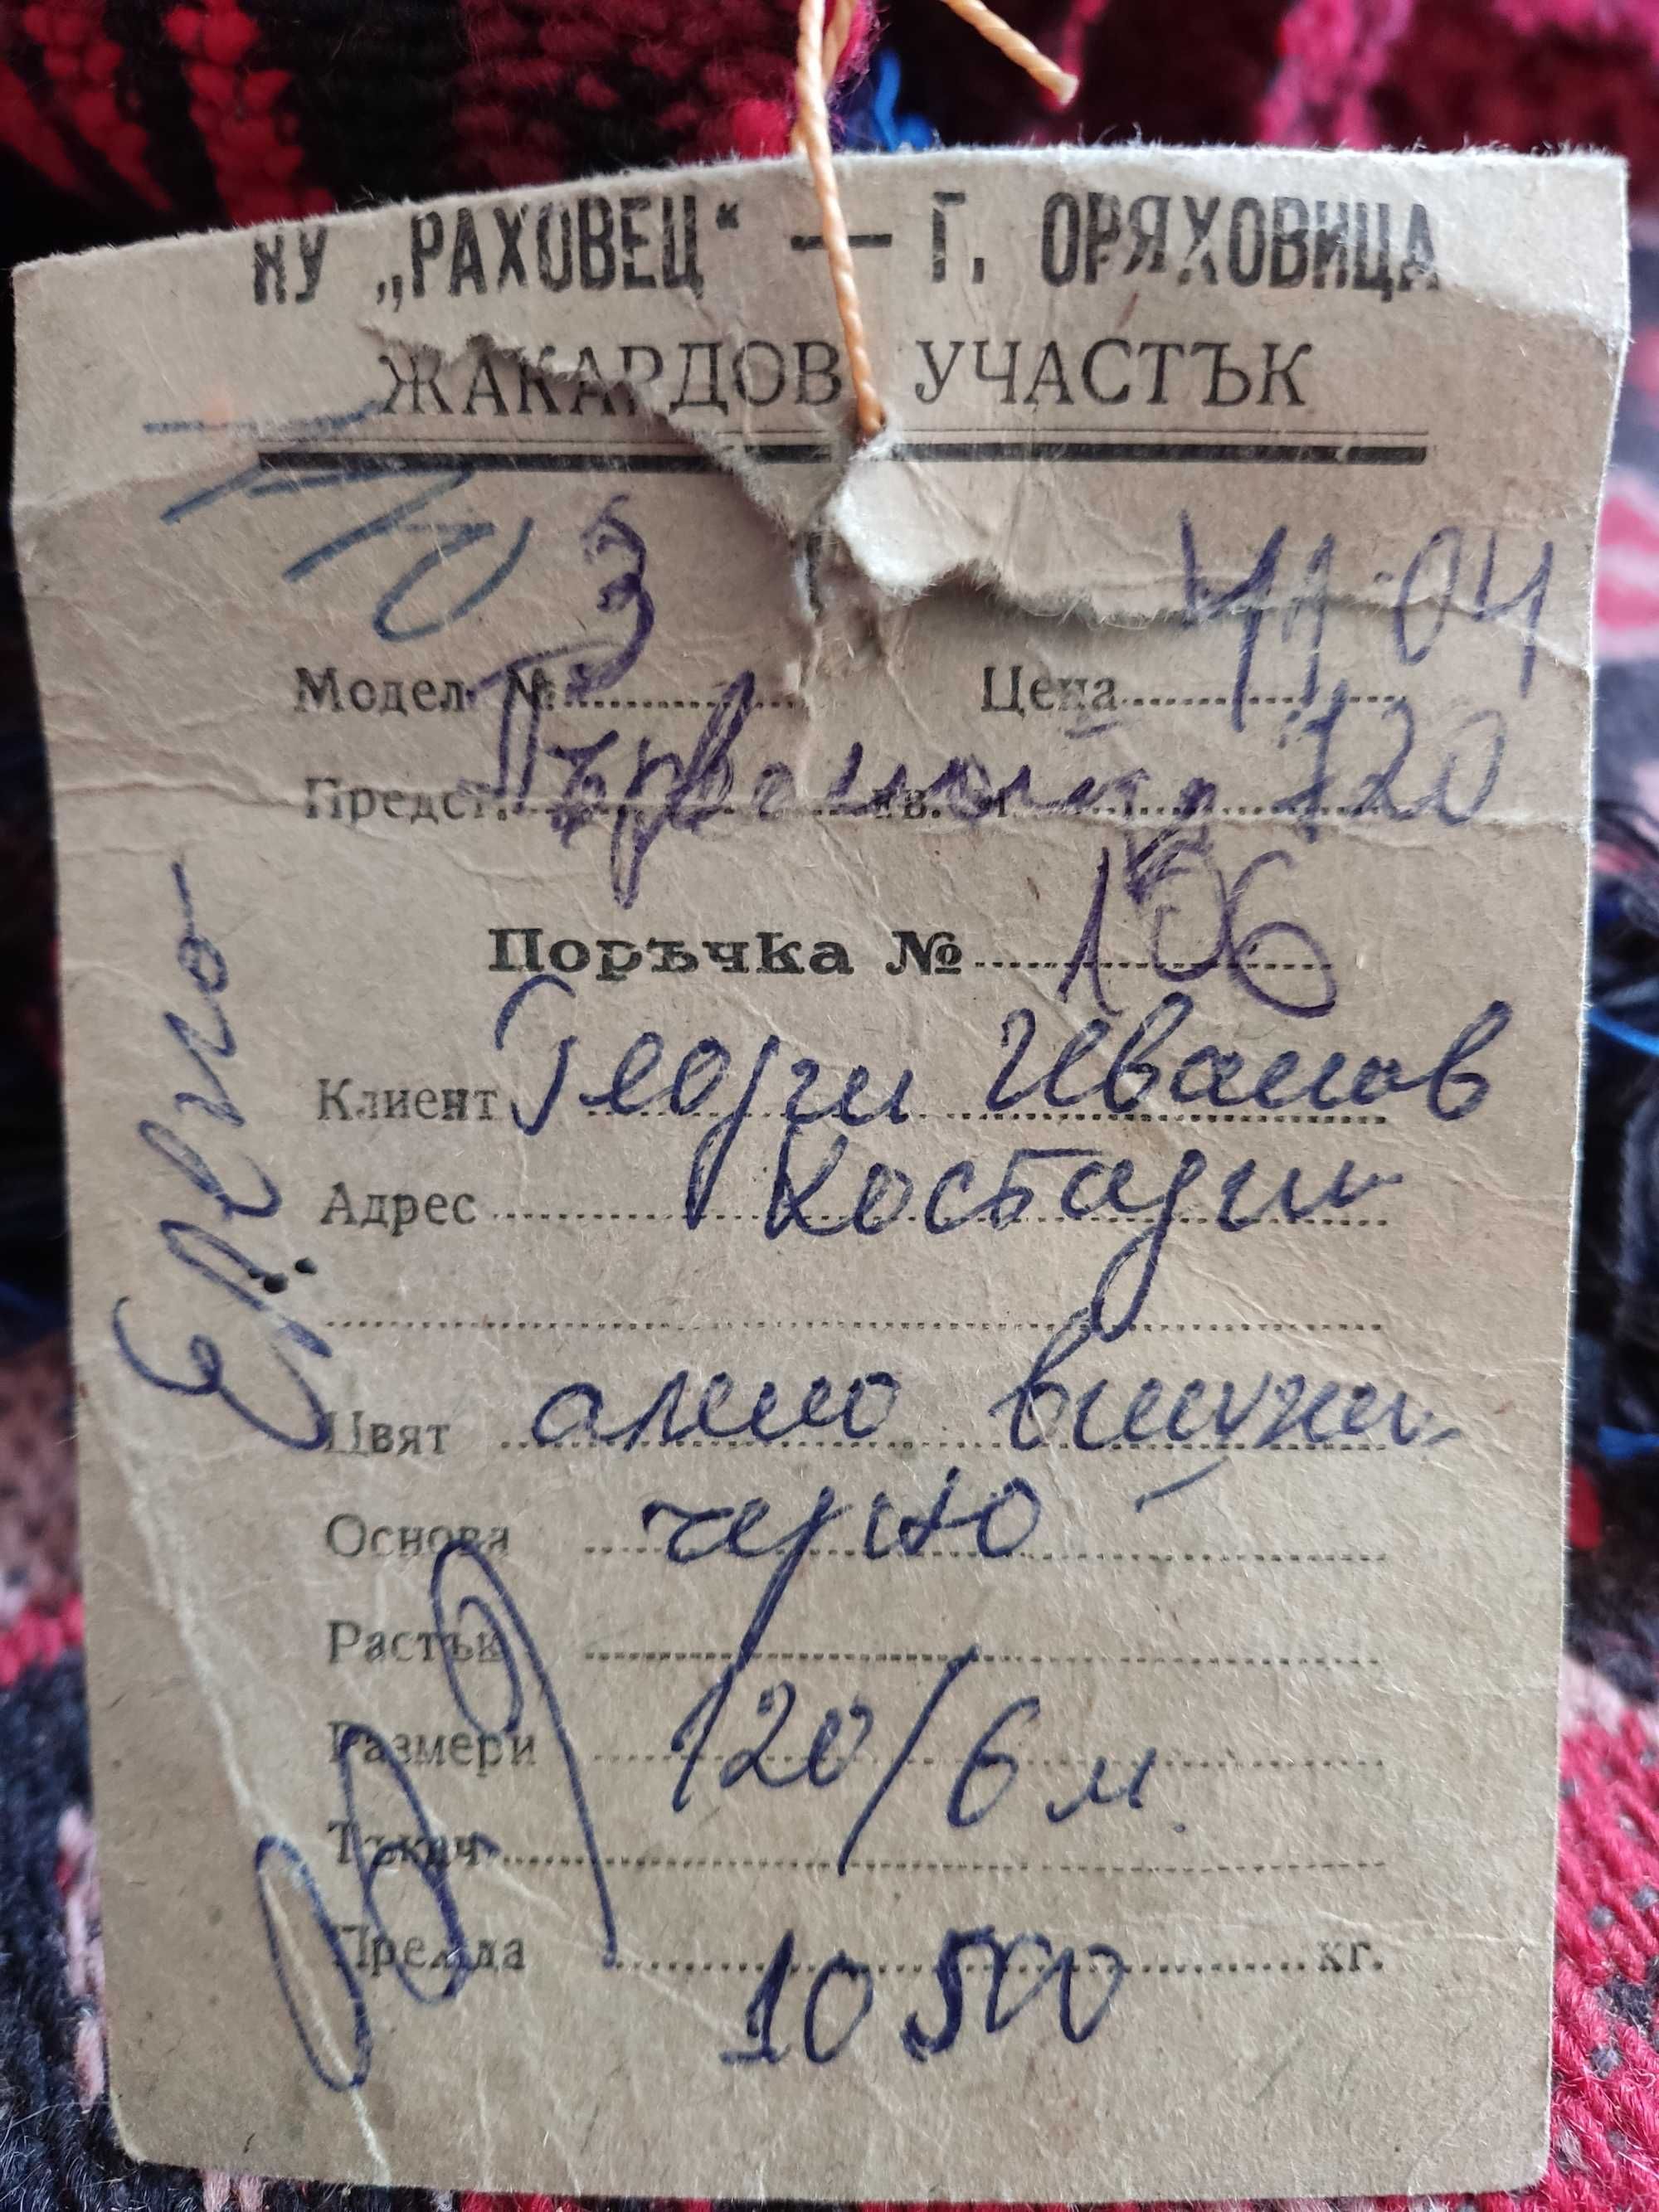 НУ „РАХОВЕЦ“ — Г. ОРЯХОВИЦА
ЖАКАРДОВ УЧАСТЪК
3 41.04
Модел № Цена
Предст. Първомайц кв. м. 7,20
Поръчка № 106
Клиент Георги Иванов
Адрес Костадин
Цвят алено вишни
Основа черно -
Растък
Размери 120/6 м.
Тъкач
Прежда 10 500 кг.